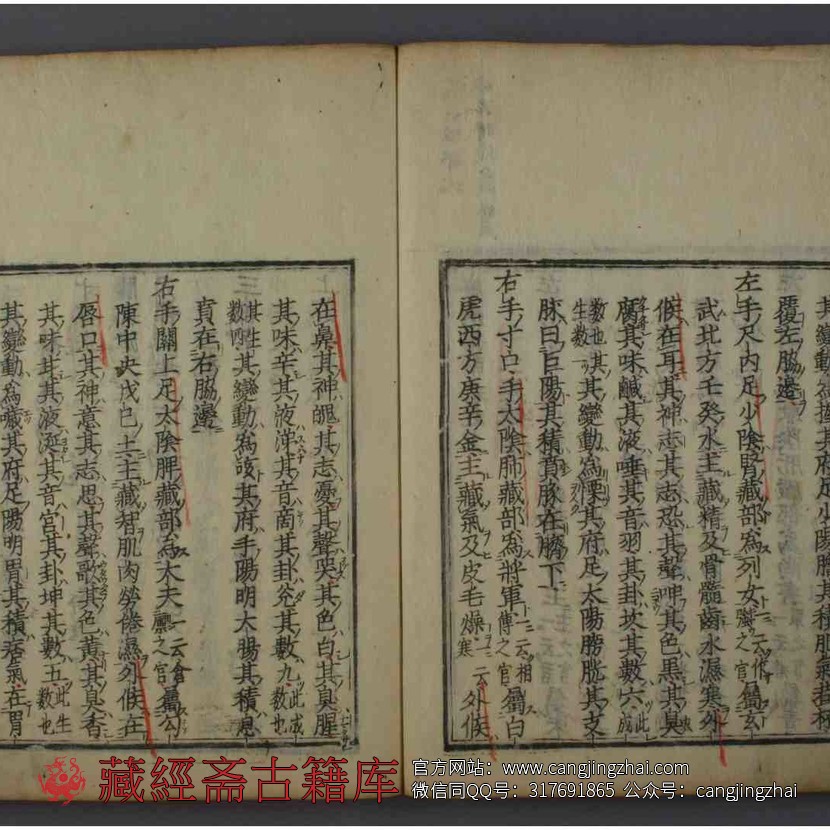 其變動為握其府足少陽膽其積肥氣
覆左脇邊
左手尺内足少陰腎藏部為列女一云作強之官屬玄
武北方壬癸水主藏精及骨髓齒水濕寒外
候在耳其神志其志恐其聲呻其色黑其臭
腐其味鹹其液唾其音羽其卦坎其數六此成
數也其生數一其變動為慄其府足太陽膀胱其支
脉曰巨陽其積賁豚在臍下
右手寸口手太陰肺藏部為將軍一云相傳之官屬白
虎西方庚辛金主藏氣及皮毛燥一云寒外候
在鼻其神魄其志憂其聲哭其色白其臭腥
其味辛其液涕其音商其卦兊其數九此成數也
其生數四其變動為咳其府手陽明大腸其積息
賁在右脇邊
右手關上足太陰脾藏部為大夫一云倉廪之官屬公
陳中央戊己土主藏智肌肉勞倦濕外候在
唇口其神意其志思其聲歌其色黃其臭香
其味甘其液涎其音宮其卦坤其數五此生數也
其變動為噦其府足陽明胃其積痞氣在胃
藏經斋古籍库
官方网站：www.cangjingzhai.com
微信同QQ号：317691865 公众号：cangjingzhai